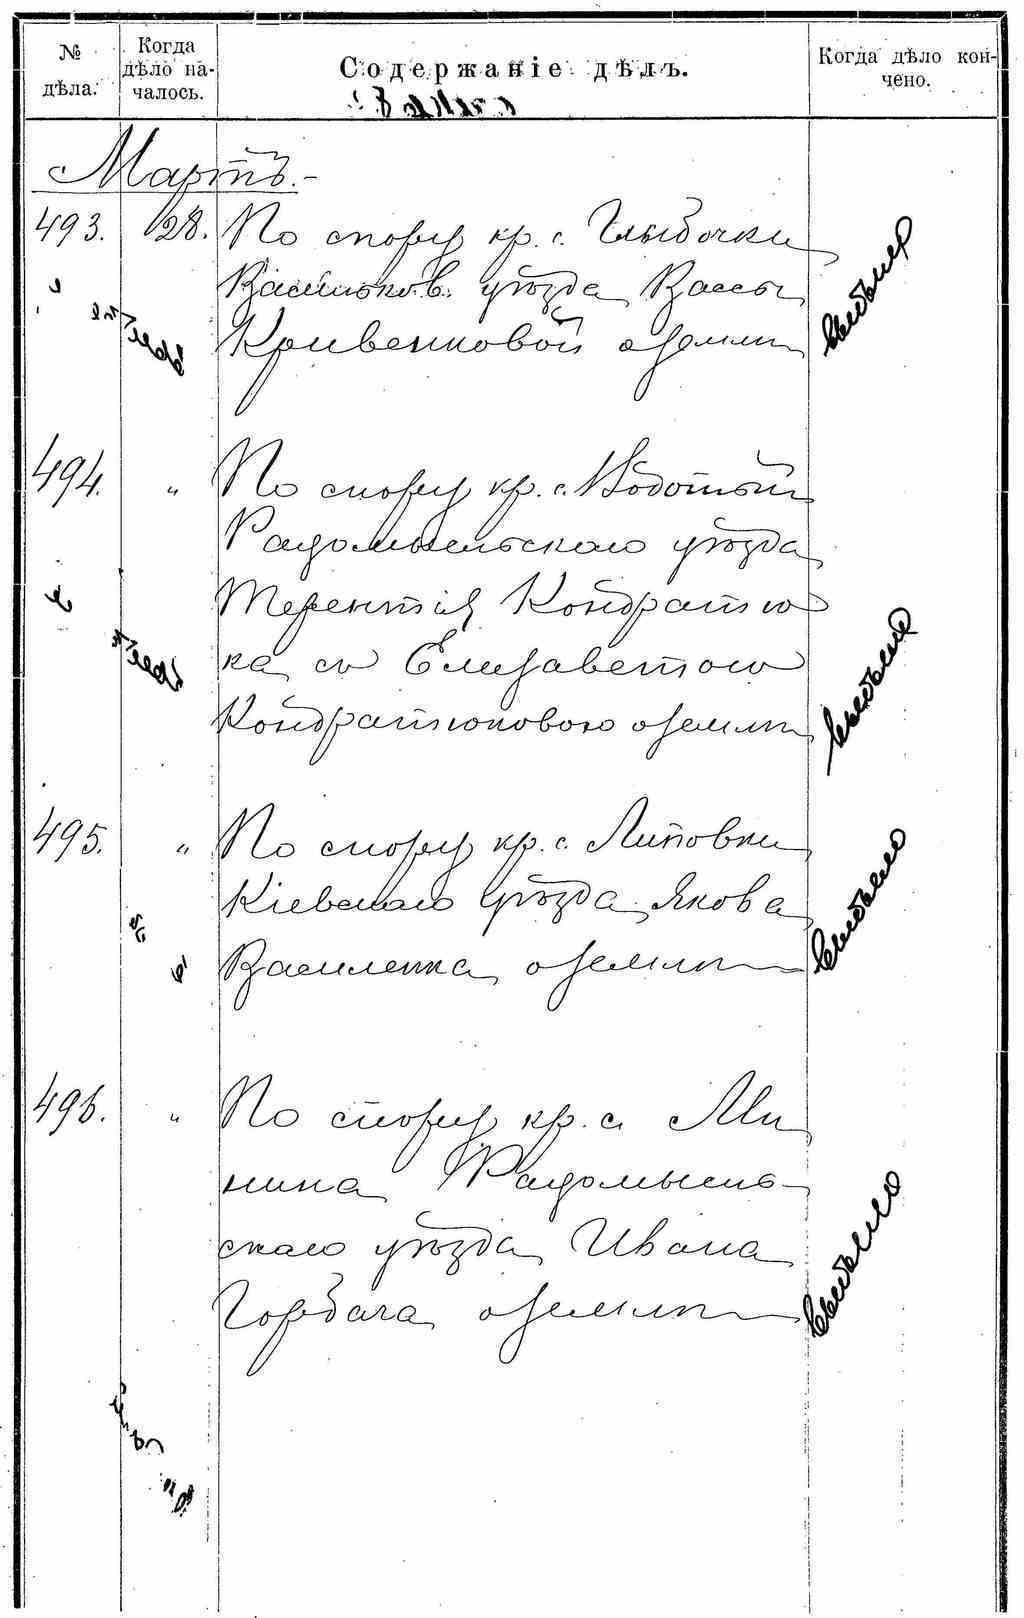 № дѣла.
Когда дѣло на-
чалось.
Содержаніе дѣлъ.
Когда дѣло кон-
чено.
Мартъ.-
493. 28. По спору кр. с. Глыбочки
Васильков. уѣзда Вассы
Кривенковой о землѣ
494. " По спору кр. с. Водотый
Радомысльскаго уѣзда
Терентія Кондратю-
ка съ Елизаветою
Кондратюковою о землѣ
495. " По спору кр. с. Липовки
Кіевскаго уѣзда Якова
Василенка о землѣ
496. " По спору кр. с. Ми
нина Радомысль-
скаго уѣзда Ивана
Горбача о землѣ
выбыло
выбыло
выбыло